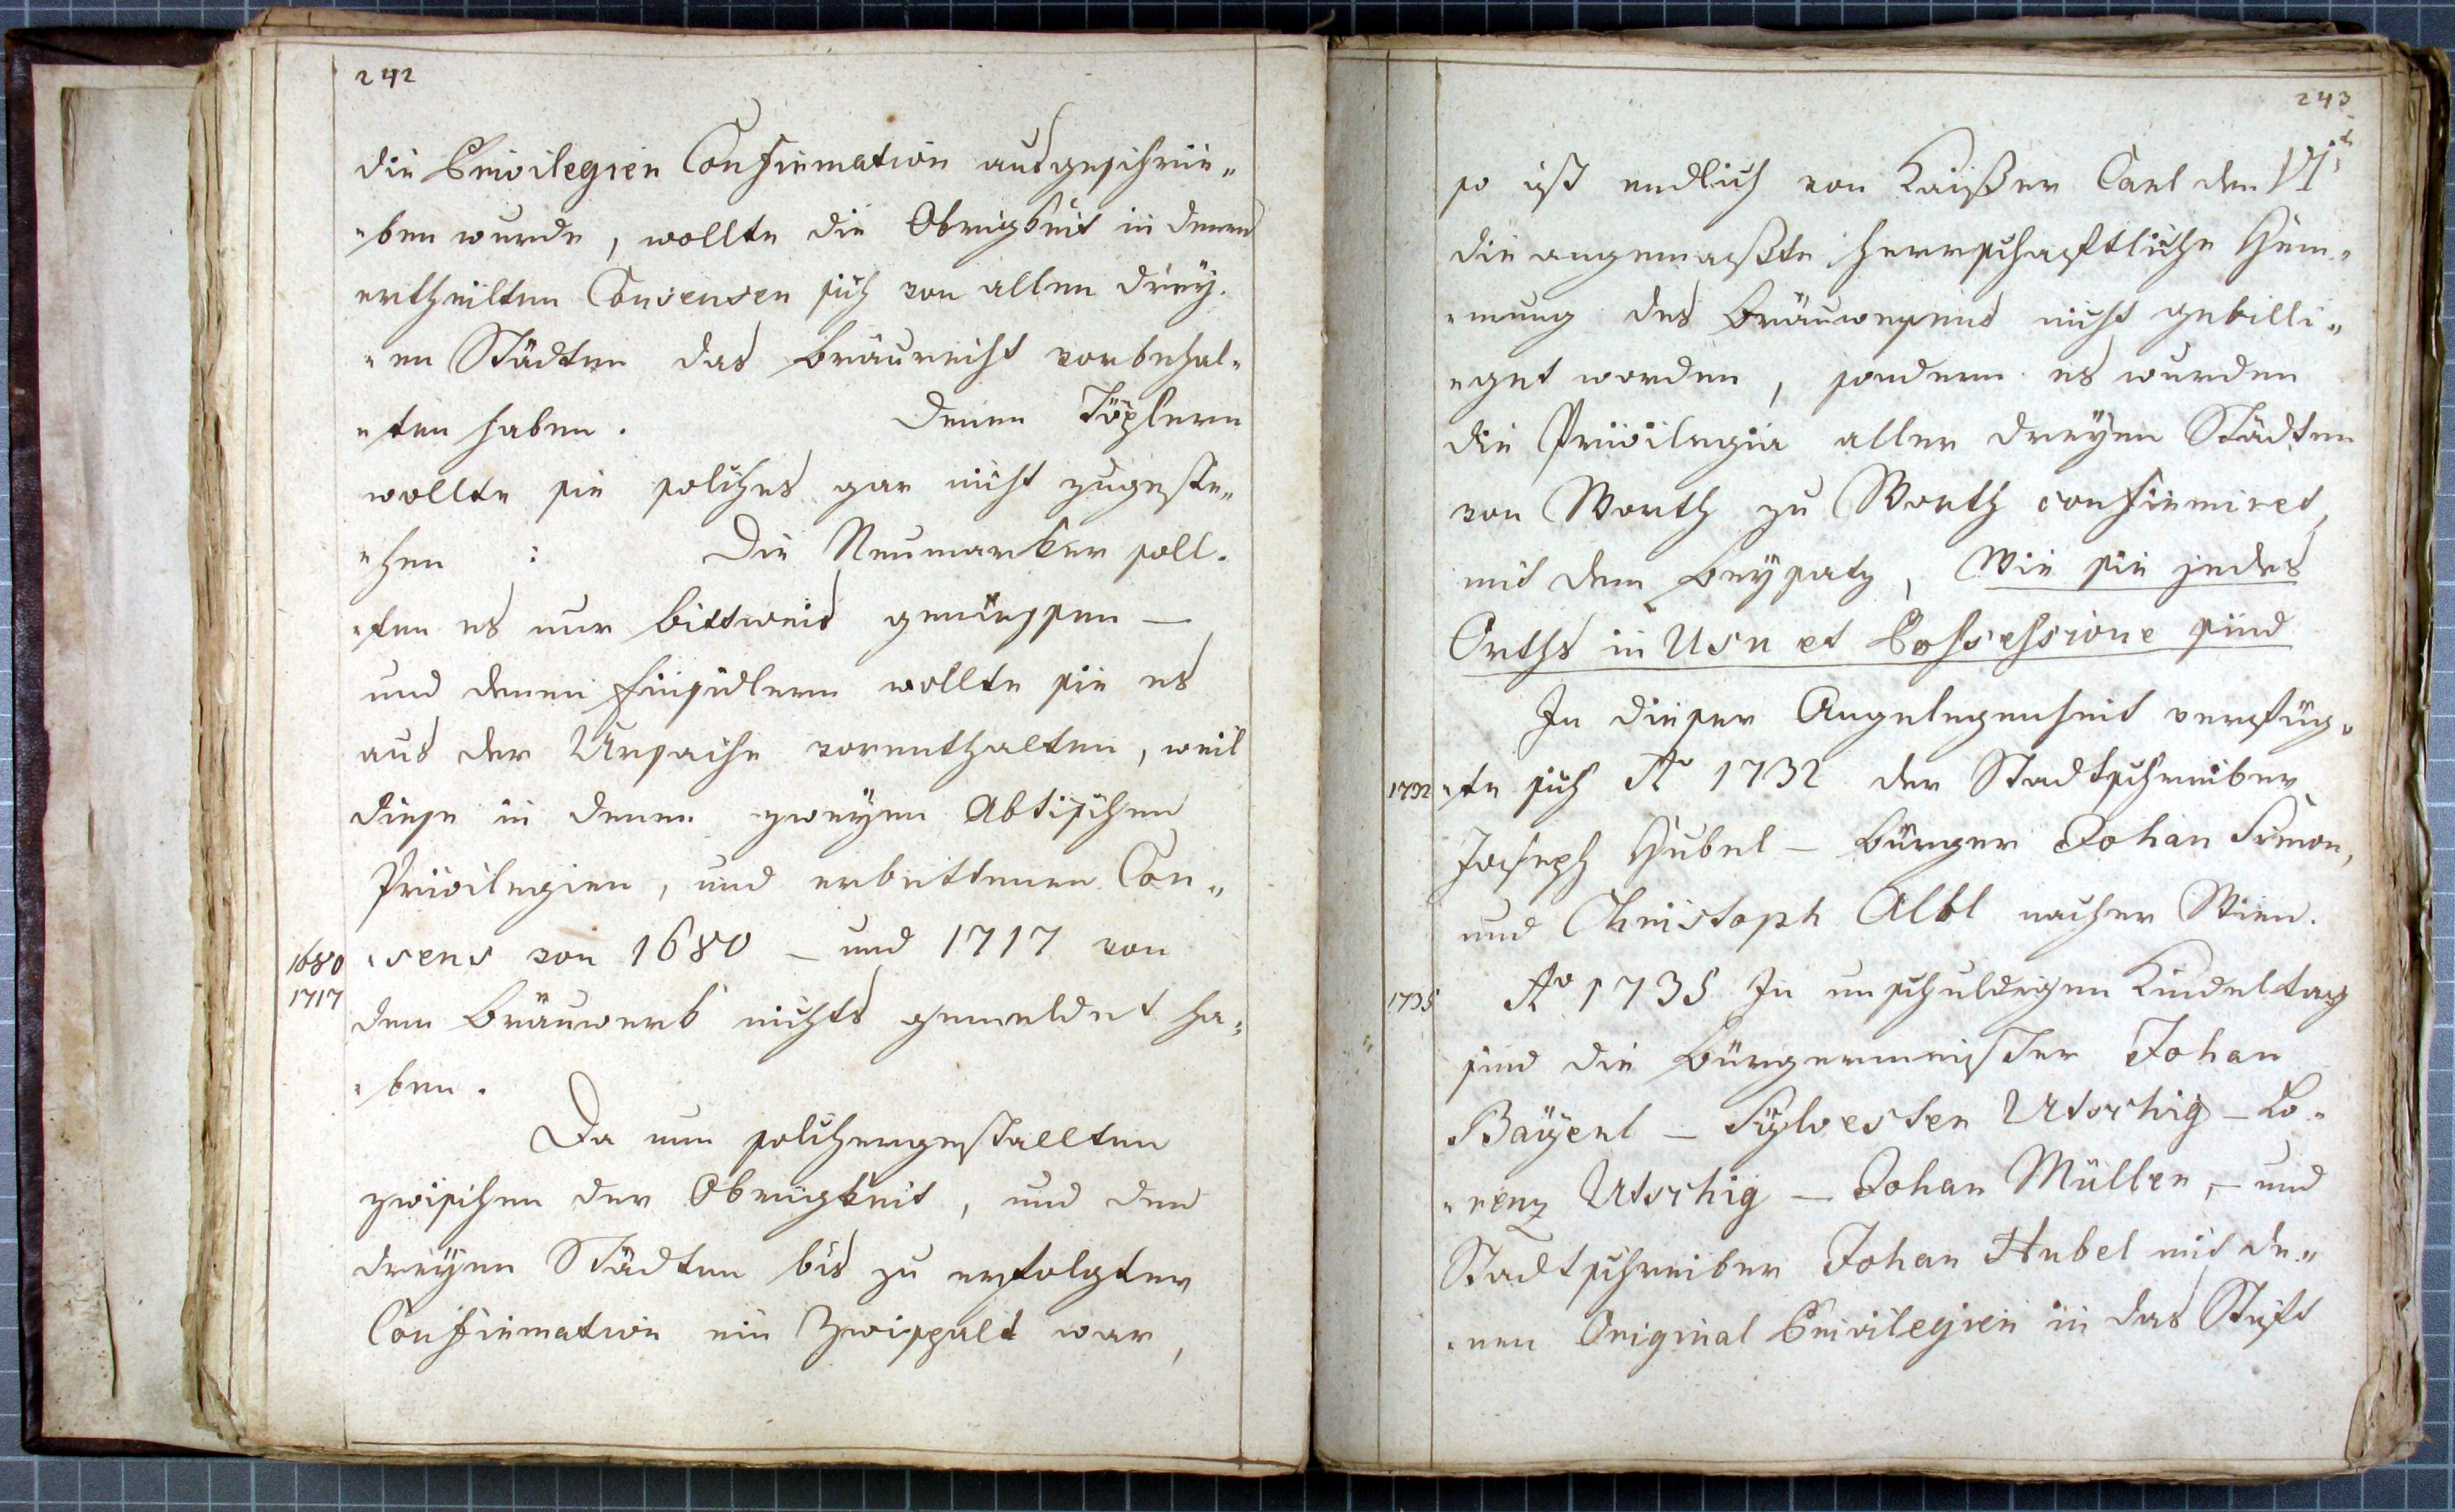 242
die Privilegien Confirmation ausgeschrie„
„ben wurde, wollte die Obrigkeit in denen
ertheilten Consensen sich von allen drey„
„en Städten das Bräurecht vorbehal„
„ten haben. Denen Töplern
wollte sie solches gar nicht zugeste„
„hen : Die Neumarker soll„
„ten es nur bittweis genüessen —
und denen Einsidlern wollte sie es
aus der Ursache vorenthalten, weil
diese in denen zweyen Abtischen
Privilegien, und erbettenen Con„
1680 „sens von 1680 – und 1717 von
1717
dem Bräuwerk nichts gemeldet ha„
„ben.
Da nun solchergestallten
zwischen der Obrigkeit, und den
dreyen Städten bis zu erfolgter
Confirmation ein Zwispalt war,
243
so ist endlich von Kaißer Carl den VI
die angemaßte herrschaftliche Hem„
„mung des Bräuwesens nicht gebilli„
„get worden, sondern es wurden
die Privilegia aller dreyen Städten
von Worth zu Worth confirmiret,
mit dem Beysatz, Wie sie jedes
Orths in Usu et Possessione sind
In dieser Angelegenheit verfüg„
1732 „te sich Ao 1732 der Stadtschreiber
Joseph Hubel – Bürger Johan Simon,
und Christoph Albl nacher Wien.
1735 Ao 1735 In unschuldigen Kindeltag
sind die Bürgermeister Johan
Bayerl – Sylvester Utschig – Lo„
„renz Utschig – Johan Müller, – und
Stadtschreiber Johan Hubel mit de„
„nen Original Privilegien in das Stift